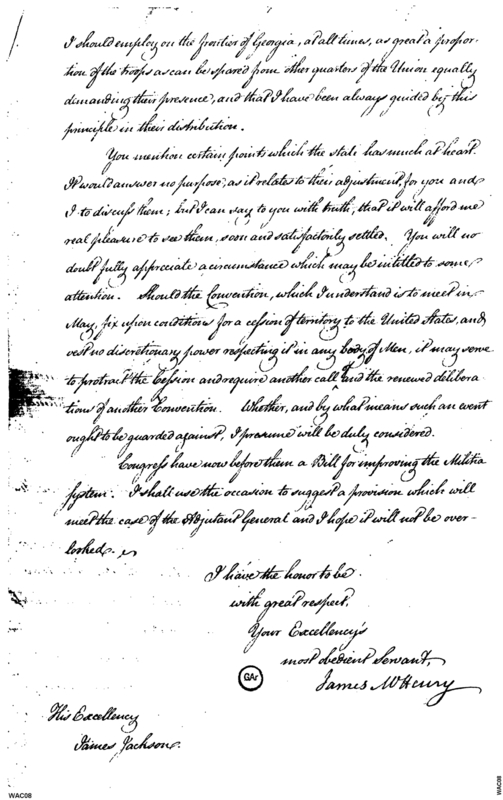 I should employ on the frontier of Georgia, at all times, as great a propor-
tion of the troops as can be spared from other quarters of the Union equally
demanding their presence, and that I have been always guided by this
principle in their distribution.
You mention certain points which the state has much at heart.
It would answer no purpose, as it relates to their adjustment, for you and
I to discuss them; but I can say to you with truth, that it will afford me
real pleasure to see them, soon and satisfactorily settled. You will no
doubt fully appreciate a circumstance which may be intitled to some
attention. Should the Convention, which I understand is to meet in
May, fix upon conditions for a cession of territory to the United States, and
vest no discretionary power respecting it in any body of Men, it may serve
to protract the Cession and require another call and the renewed delibera-
tions of another Convention. Whether, and by what means such an event
ought to be guarded against, I presume will be duly considered.
Congress have now before them a Bill for improving the Militia
system. I shall use the occasion to suggest a provision which will
meet the case of the Adjutant General and I hope it will not be over-
looked.
I have the honor to be
with great respect,
Your Excellency's
most obedient Servant,
James McHenry
GAr
His Excellency
James Jackson.
WAC08
WAC08